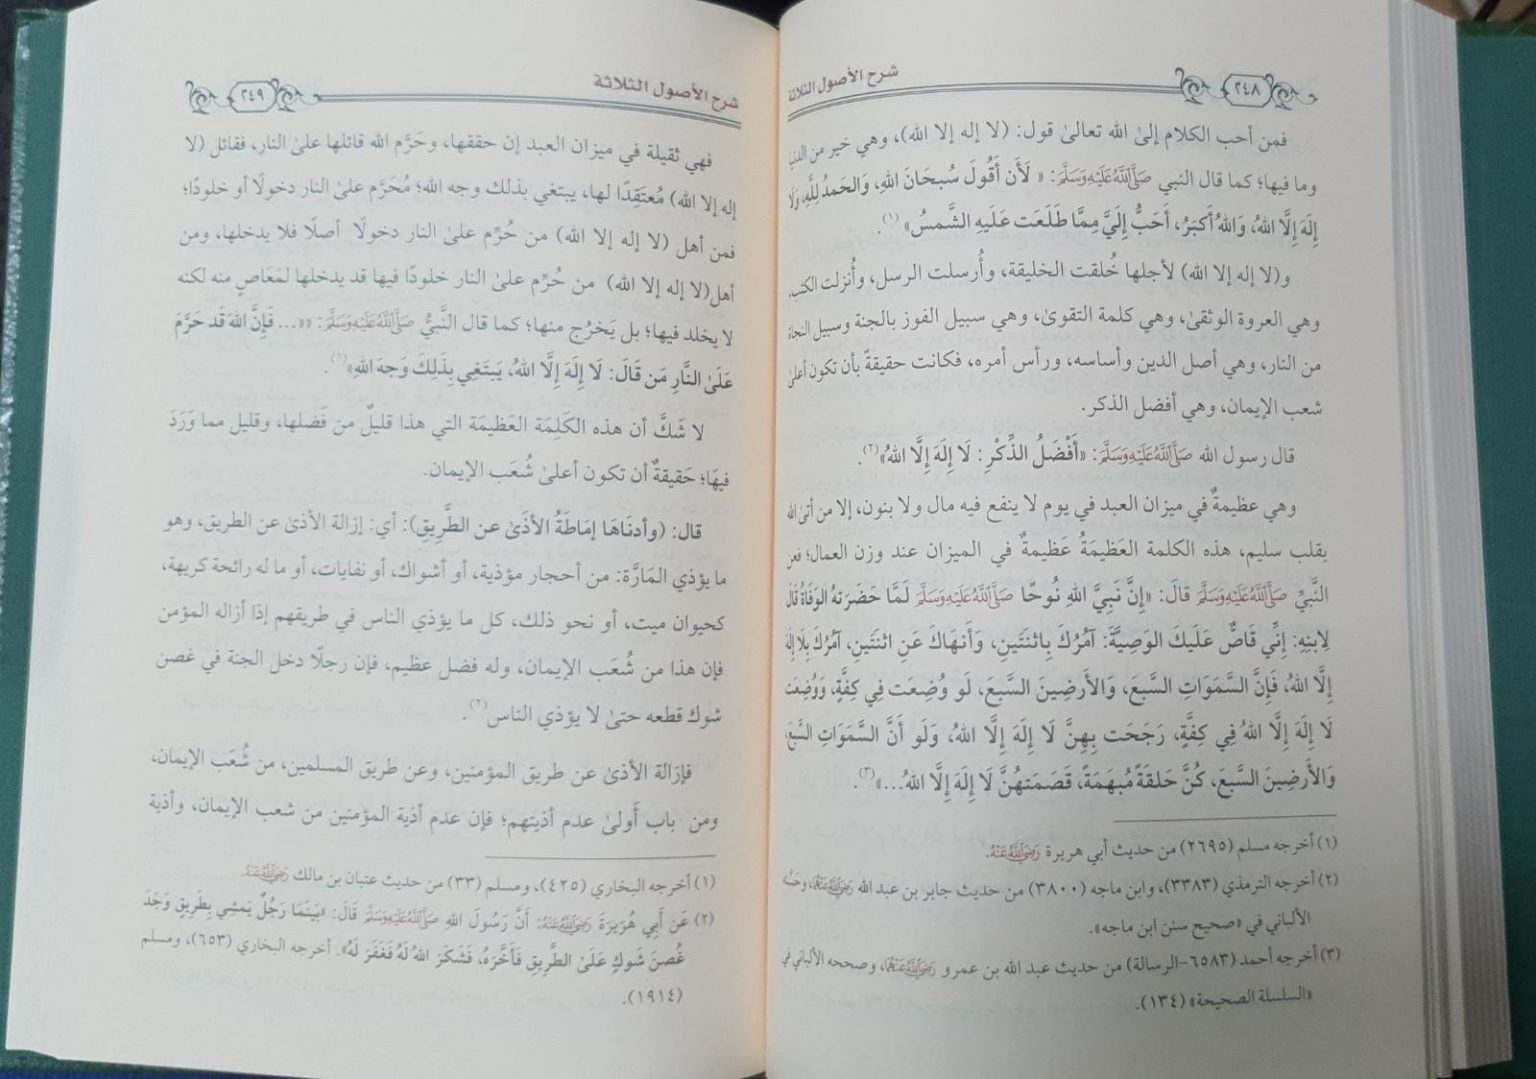 شرح الأصول الثلاثة
٢٤٨
فمن أحب الكلام إلىٰ الله تعالىٰ قول: (لا إله إلا الله)، وهي خير من الدنيا
وما فيها؛ كما قال النبي ﷺ: « لَأَن أَقُولَ سُبحَانَ اللهِ، وَالحَمدُ لِلَّهِ، وَلَا
إِلَهَ إِلَّا اللهُ، وَاللهُ أَكبَرُ، أَحَبُّ إِلَيَّ مِمَّا طَلَعَت عَلَيهِ الشَّمسُ»(١).
و(لا إله إلا الله) لأجلها خُلقت الخليقة، وأُرسلت الرسل، وأُنزلت الكتب،
وهي العروة الوثقىٰ، وهي كلمة التقوىٰ، وهي سبيل الفوز بالجنة وسبيل النجاة
من النار، وهي أصل الدين وأساسه، ورأس أمره، فكانت حقيقةً بأن تكون أعلىٰ
شعب الإيمان، وهي أفضل الذكر.
قال رسول الله ﷺ: «أَفْضَلُ الذِّكْرِ: لَا إِلَهَ إِلَّا اللهُ»(٢).
وهي عظيمةٌ في ميزان العبد في يوم لا ينفع فيه مال ولا بنون، إلا من أتىٰ الله
بقلب سليم، هذه الكلمة العَظيمَةُ عَظيمةٌ في الميزان عند وزن العمال؛ فعن
النَّبيِّ ﷺ قالَ: «إِنَّ نَبِيَّ اللهِ نُوحًا ﷺ لَمَّا حَضَرَتهُ الوَفَاةُ قَالَ
لِابنِهِ: إِنِّي قَاصٌّ عَلَيكَ الوَصِيَّةَ: آمُرُكَ بِاثنَتَينِ، وَأَنهَاكَ عَنِ اثنَتَينِ، آمُرُكَ بِلَا إِلَهَ
إِلَّا اللهُ، فَإِنَّ السَّمَوَاتِ السَّبعَ، وَالأَرضِينَ السَّبعَ، لَو وُضِعَت فِي كِفَّةٍ، وَوُضِعَت
لَا إِلَهَ إِلَّا اللهُ فِي كِفَّةٍ، رَجَحَت بِهِنَّ لَا إِلَهَ إِلَّا اللهُ، وَلَو أَنَّ السَّمَوَاتِ السَّبعَ،
وَالأَرضِينَ السَّبعَ، كُنَّ حَلقَةً مُبهَمَةً، قَصَمَتهُنَّ لَا إِلَهَ إِلَّا اللهُ...»(٣).
(١) أخرجه مسلم (٢٦٩٥) من حديث أبي هريرة رَضِيَ اللَّهُ عَنْهُ.
(٢) أخرجه الترمذي (٣٣٨٣)، وابن ماجه (٣٨٠٠) من حديث جابر بن عبد الله رَضِيَ اللَّهُ عَنْهُمَا، وحسَّنه
الألباني في «صحيح سنن ابن ماجه».
(٣) أخرجه أحمد (٦٥٨٣-الرسالة) من حديث عبد الله بن عمرو رَضِيَ اللَّهُ عَنْهُمَا، وصححه الألباني في
«السلسلة الصحيحة» (١٣٤).
شرح الأصول الثلاثة
٢٤٩
فهي ثقيلة في ميزان العبد إن حققها، وحَرَّم الله قائلها علىٰ النار، فقائل (لا
إله إلا الله) مُعتَقِدًا لها، يبتغي بذلك وجه الله؛ مُحَرَّم علىٰ النار دخولًا أو خلودًا؛
فمن أهل (لا إله إلا الله) من حُرِّم علىٰ النار دخولًا أصلًا فلا يدخلها، ومن
أهل(لا إله إلا الله) من حُرِّم علىٰ النار خلودًا فيها قد يدخلها لمَعَاصٍ منه لكنه
لا يخلد فيها؛ بل يَخرُج منها؛ كما قال النَّبيُّ ﷺ: ««... فَإِنَّ اللهَ قَد حَرَّمَ
عَلَىٰ النَّارِ مَن قَالَ: لَا إِلَهَ إِلَّا اللهُ، يَبتَغِي بِذَلِكَ وَجهَ اللهِ»(١).
لا شَكَّ أن هذه الكَلِمَة العَظيمَة التي هذا قليلٌ من فَضلها، وقليل مما وَرَدَ
فيهَا؛ حَقيقةٌ أن تكون أعلىٰ شُعَب الإيمان.
قال: (وأدنَاهَا إمَاطَةُ الأذَىٰ عن الطَّرِيقِ): أي: إزالة الأذىٰ عن الطريق، وهو
ما يؤذي المَارَّة: من أحجار مؤذية، أو أشواك، أو نفايات، أو ما له رائحة كريهة،
كحيوان ميت، أو نحو ذلك، كل ما يؤذي الناس في طريقهم إذا أزاله المؤمن
فإن هذا من شُعَب الإيمان، وله فضل عظيم، فإن رجلًا دخل الجنة في غصن
شوك قطعه حتىٰ لا يؤذي الناس(٢).
فإزالة الأذىٰ عن طريق المؤمنين، وعن طريق المسلمين، من شُعَب الإيمان،
ومن باب أَولىٰ عدم أذيتهم؛ فإن عدم أذية المؤمنين من شعب الإيمان، وأذية
(١) أخرجه البخاري (٤٢٥)، ومسلم (٣٣) من حديث عتبان بن مالك رَضِيَ اللَّهُ عَنْهُ.
(٢) عَن أَبِي هُرَيرَةَ رَضِيَ اللَّهُ عَنْهُ: أَنَّ رَسُولَ اللهِ ﷺ قَالَ: «بَينَمَا رَجُلٌ يَمشِي بِطَرِيقٍ وَجَدَ
غُصنَ شَوكٍ عَلَىٰ الطَّرِيقِ فَأَخَّرَهُ، فَشَكَرَ اللهُ لَهُ فَغَفَرَ لَهُ». أخرجه البخاري (٦٥٣)، ومسلم
(١٩١٤).